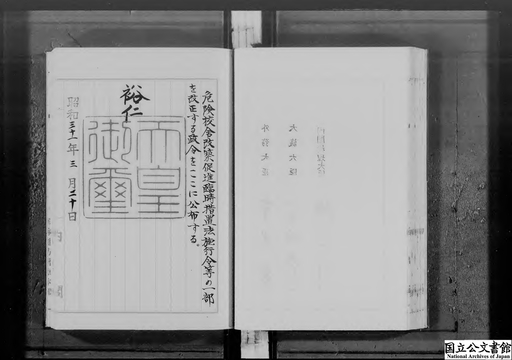 危険校舎改築促進臨時措置法施行令等の一部
を改正する政令をここに公布する。
裕仁
天皇
御璽
昭和三十一年三月二十日
国立公文書館
National Archives of Japan